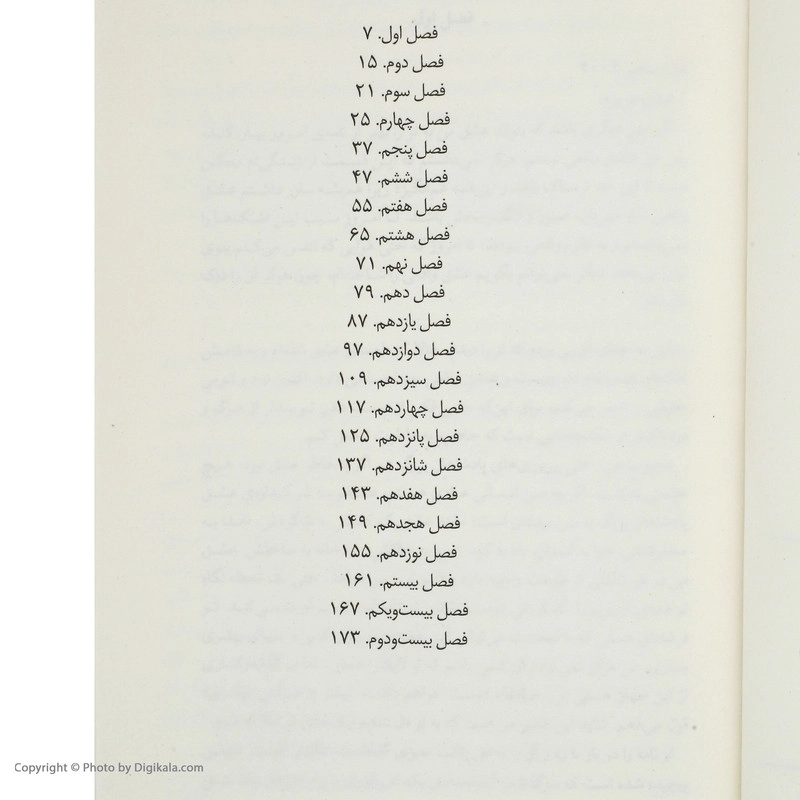 فصل اول. ۷
فصل دوم. ۱۵
فصل سوم. ۲۱
فصل چهارم. ۲۵
فصل پنجم. ۳۷
فصل ششم. ۴۷
فصل هفتم. ۵۵
فصل هشتم. ۶۵
فصل نهم. ۷۱
فصل دهم. ۷۹
فصل یازدهم. ۸۷
فصل دوازدهم. ۹۷
فصل سیزدهم. ۱۰۹
فصل چهاردهم. ۱۱۷
فصل پانزدهم. ۱۲۵
فصل شانزدهم. ۱۳۷
فصل هفدهم. ۱۴۳
فصل هجدهم. ۱۴۹
فصل نوزدهم. ۱۵۵
فصل بیستم. ۱۶۱
فصل بیست‌ویکم. ۱۶۷
فصل بیست‌ودوم. ۱۷۳
Copyright © Photo by Digikala.com